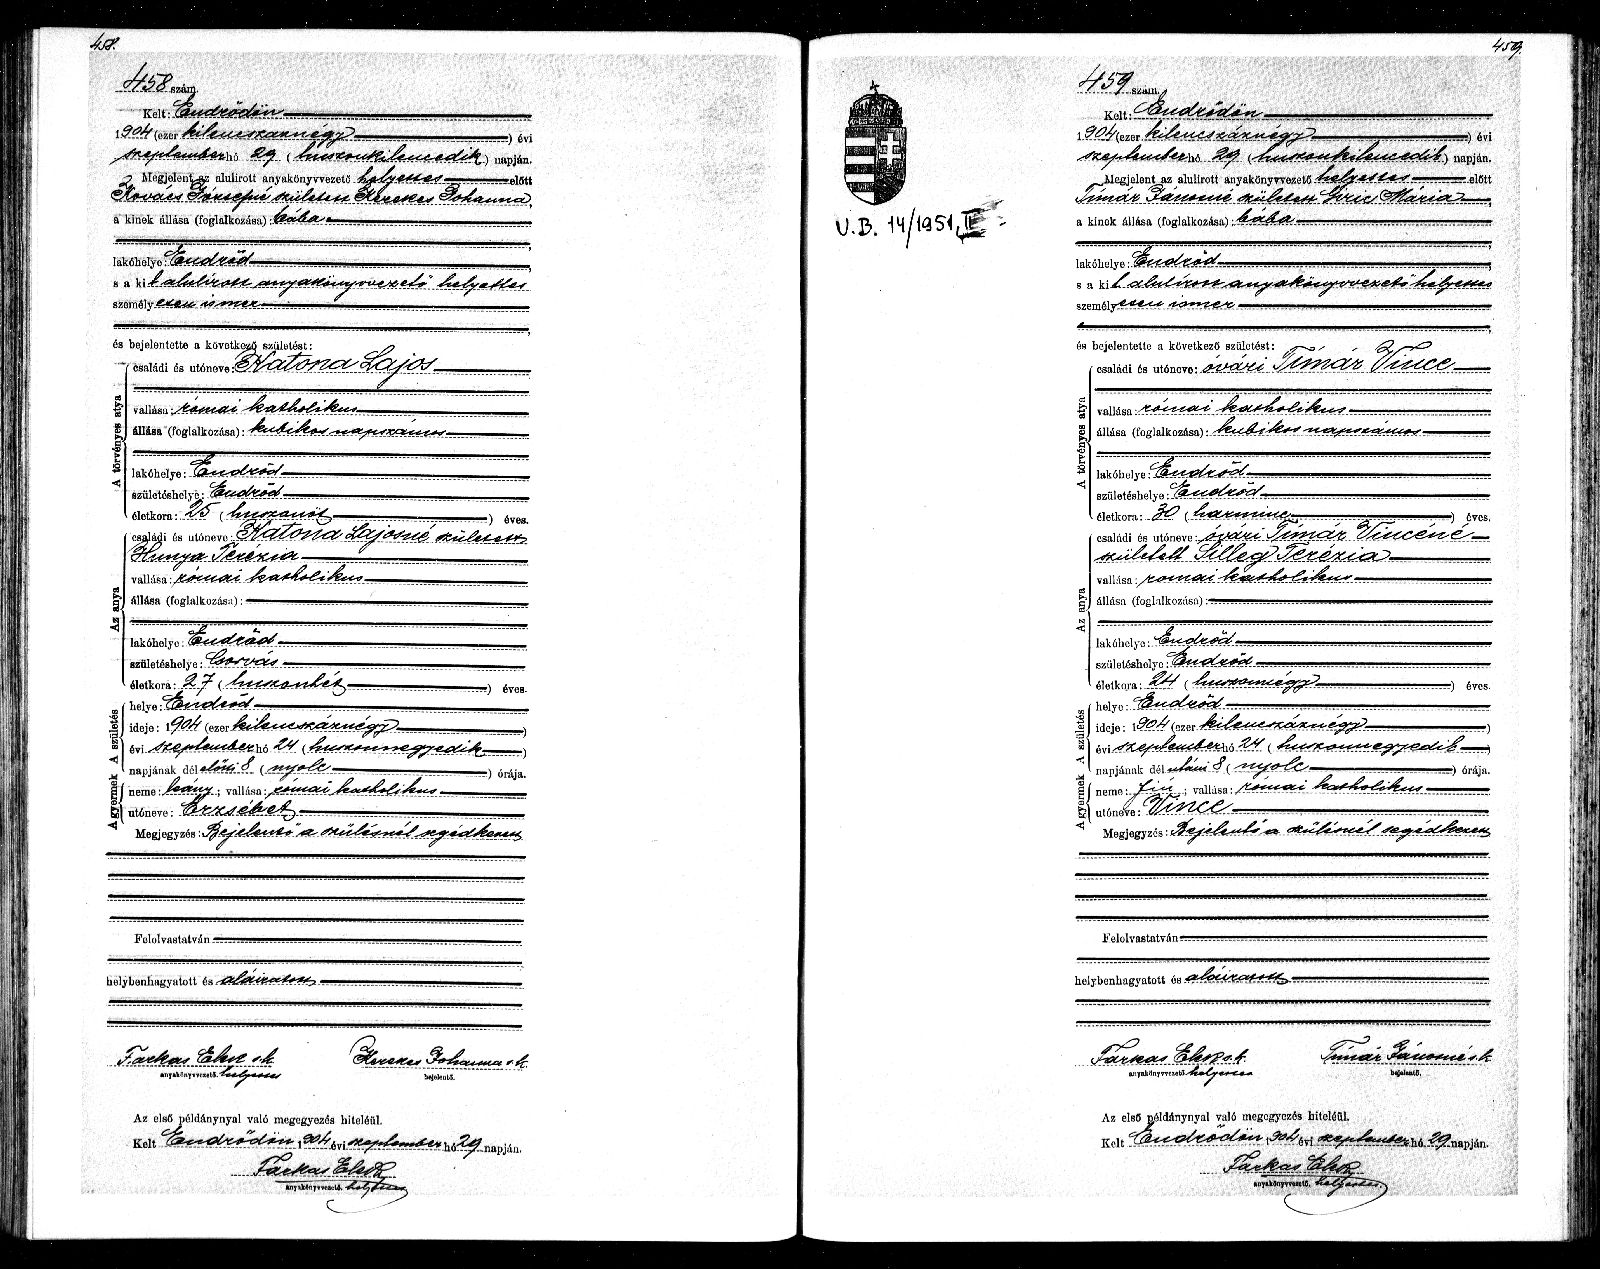 458.
458 szám.
Kelt: Endrődön
1904 (ezer kilencszáznégy) évi
szeptember hó 29 (huszonkilencedik) napján.
Megjelent az alulirott anyakönyvvezető helyettes előtt
Kovács Józsefné született Kerekes Johanna,
a kinek állása (foglalkozása): bába
lakóhelye: Endrőd
s a kit alulírott anyakönyvvezető helyettes
személyesen ismer
és bejelentette a következő születést:
A törvényes atya
családi és utóneve: Katona Lajos
vallása: római katholikus
állása (foglalkozása): kubikos napszámos
lakóhelye: Endrőd
születéshelye: Endrőd
életkora: 25 (huszonöt) éves.
Az anya
családi és utóneve: Katona Lajosné született
Hunya Terézia
vallása: római katholikus
állása (foglalkozása):
lakóhelye: Endrőd
születéshelye: Csorvás
életkora: 27 (huszonhét) éves.
A születés
helye: Endrőd
ideje: 1904 (ezer kilencszáznégy)
évi szeptember hó 24 (huszonnegyedik)
napjának dél előtti 8 (nyolc) órája.
A gyermek
neme: leány; vallása: római katholikus
utóneve: Erzsébet
Megjegyzés: Bejelentő a szülésnél segédkezett
Felolvastatván
helybenhagyatott és aláiratott
Farkas Elek s.k. Kerekes Johanna s.k.
anyakönyvvezető. helyettes bejelentő.
Az első példánynyal való megegyezés hiteléül.
Kelt Endrődön 1904 évi szeptember hó 29 napján.
Farkas Elek
anyakönyvvezető. helyettes
U.B. 14/1951. II
459.
459 szám.
Kelt: Endrődön
1904 (ezer kilencszáznégy) évi
szeptember hó 29 (huszonkilencedik) napján.
Megjelent az alulirott anyakönyvvezető helyettes előtt
Tímár Jánosné született Mária,
a kinek állása (foglalkozása): bába
lakóhelye: Endrőd
s a kit alulírott anyakönyvvezető helyettes
személyesen ismer
és bejelentette a következő születést:
A törvényes atya
családi és utóneve: óvári Tímár Vince
vallása: római katholikus
állása (foglalkozása): kubikos napszámos
lakóhelye: Endrőd
születéshelye: Endrőd
életkora: 30 (harminc) éves.
Az anya
családi és utóneve: óvári Tímár Vincéné
született Selleg Terézia
vallása: római katholikus
állása (foglalkozása):
lakóhelye: Endrőd
születéshelye: Endrőd
életkora: 24 (huszonnégy) éves.
A születés
helye: Endrőd
ideje: 1904 (ezer kilencszáznégy)
évi szeptember hó 24 (huszonnegyedik)
napjának dél utáni 8 (nyolc) órája.
A gyermek
neme: fiú; vallása: római katholikus
utóneve: Vince
Megjegyzés: Bejelentő a szülésnél segédkezett
Felolvastatván
helybenhagyatott és aláiratott
Farkas Elek s.k. Tímár Jánosné s.k.
anyakönyvvezető. helyettes bejelentő.
Az első példánynyal való megegyezés hiteléül.
Kelt Endrődön 1904 évi szeptember hó 29 napján.
Farkas Elek
anyakönyvvezető. helyettes.